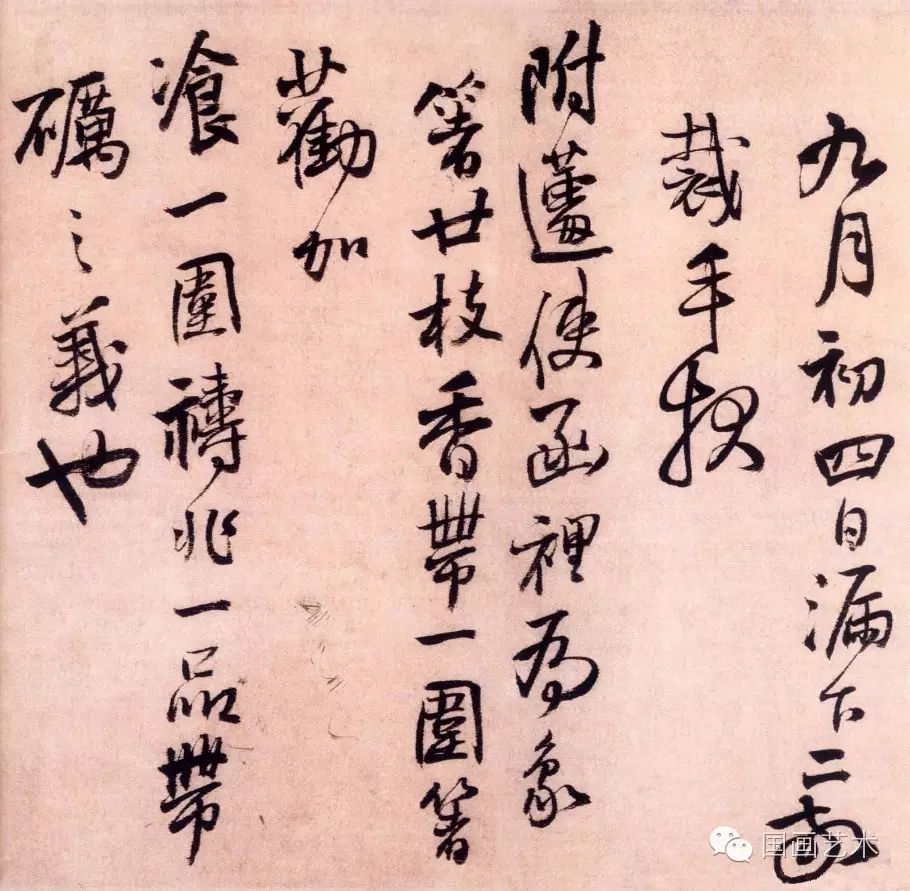 九月初四日漏下二
裁手
附使函裡為象
箸廿枝香帶一圍箸
勸加
飡一圍禱兆一品帶
礪之義也
国画艺术